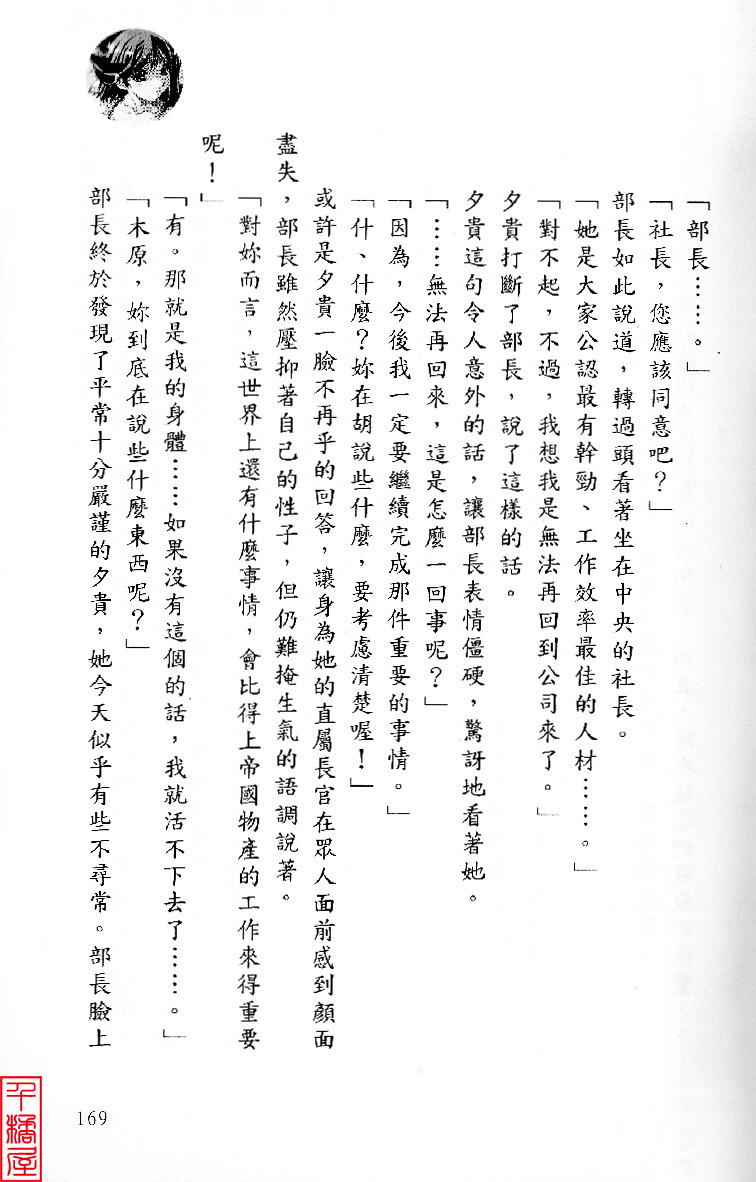 「部長……。」
「社長，您應該同意吧？」
部長如此說道，轉過頭看著坐在中央的社長。
「她是大家公認最有幹勁、工作效率最佳的人材……。」
「對不起，不過，我想我是無法再回到公司來了。」
夕貴打斷了部長，說了這樣的話。
夕貴這句令人意外的話，讓部長表情僵硬，驚訝地看著她。
「……無法再回來，這是怎麼一回事呢？」
「因為，今後我一定要繼續完成那件重要的事情。」
「什、什麼？妳在胡說些什麼，要考慮清楚喔！」
或許是夕貴一臉不再乎的回答，讓身為她的直屬長官在眾人面前感到顏面
盡失，部長雖然壓抑著自己的性子，但仍難掩生氣的語調說著。
「對妳而言，這世界上還有什麼事情，會比得上帝國物產的工作來得重要
呢！」
「有。那就是我的身體……如果沒有這個的話，我就活不下去了……。」
「木原，妳到底在說些什麼東西呢？」
部長終於發現了平常十分嚴謹的夕貴，她今天似乎有些不尋常。部長臉上
169
千橘屋